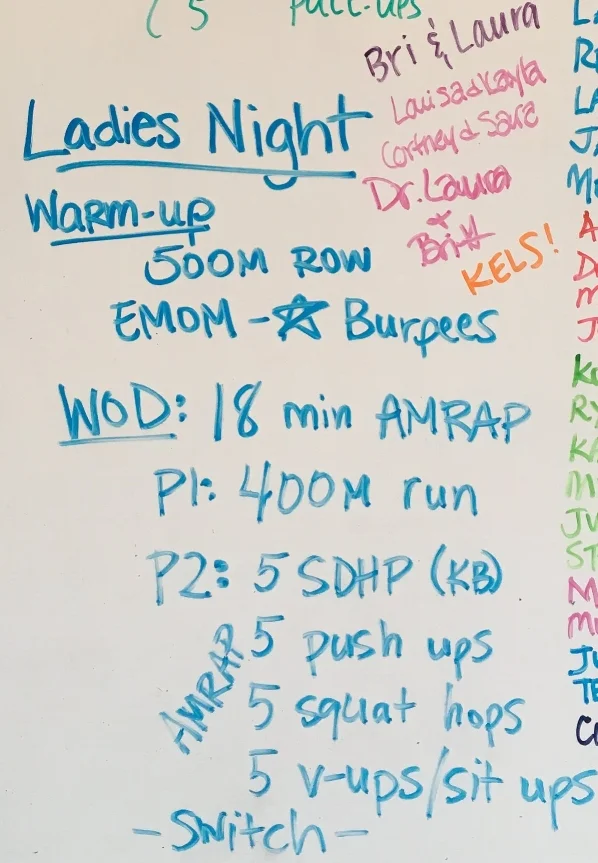 ( 5 PULL-UPS
Bri & Laura
Louisa & Kayla
Cortney & Sara
Dr. Laura
&
Britt
KELS!
Ladies Night
Warm-up
500M ROW
EMOM - ☆ Burpees
WOD: 18 min AMRAP
P1: 400M run
P2: 5 SDHP (KB)
AMRAP
5 push ups
5 squat hops
5 v-ups/sit ups
- Switch -